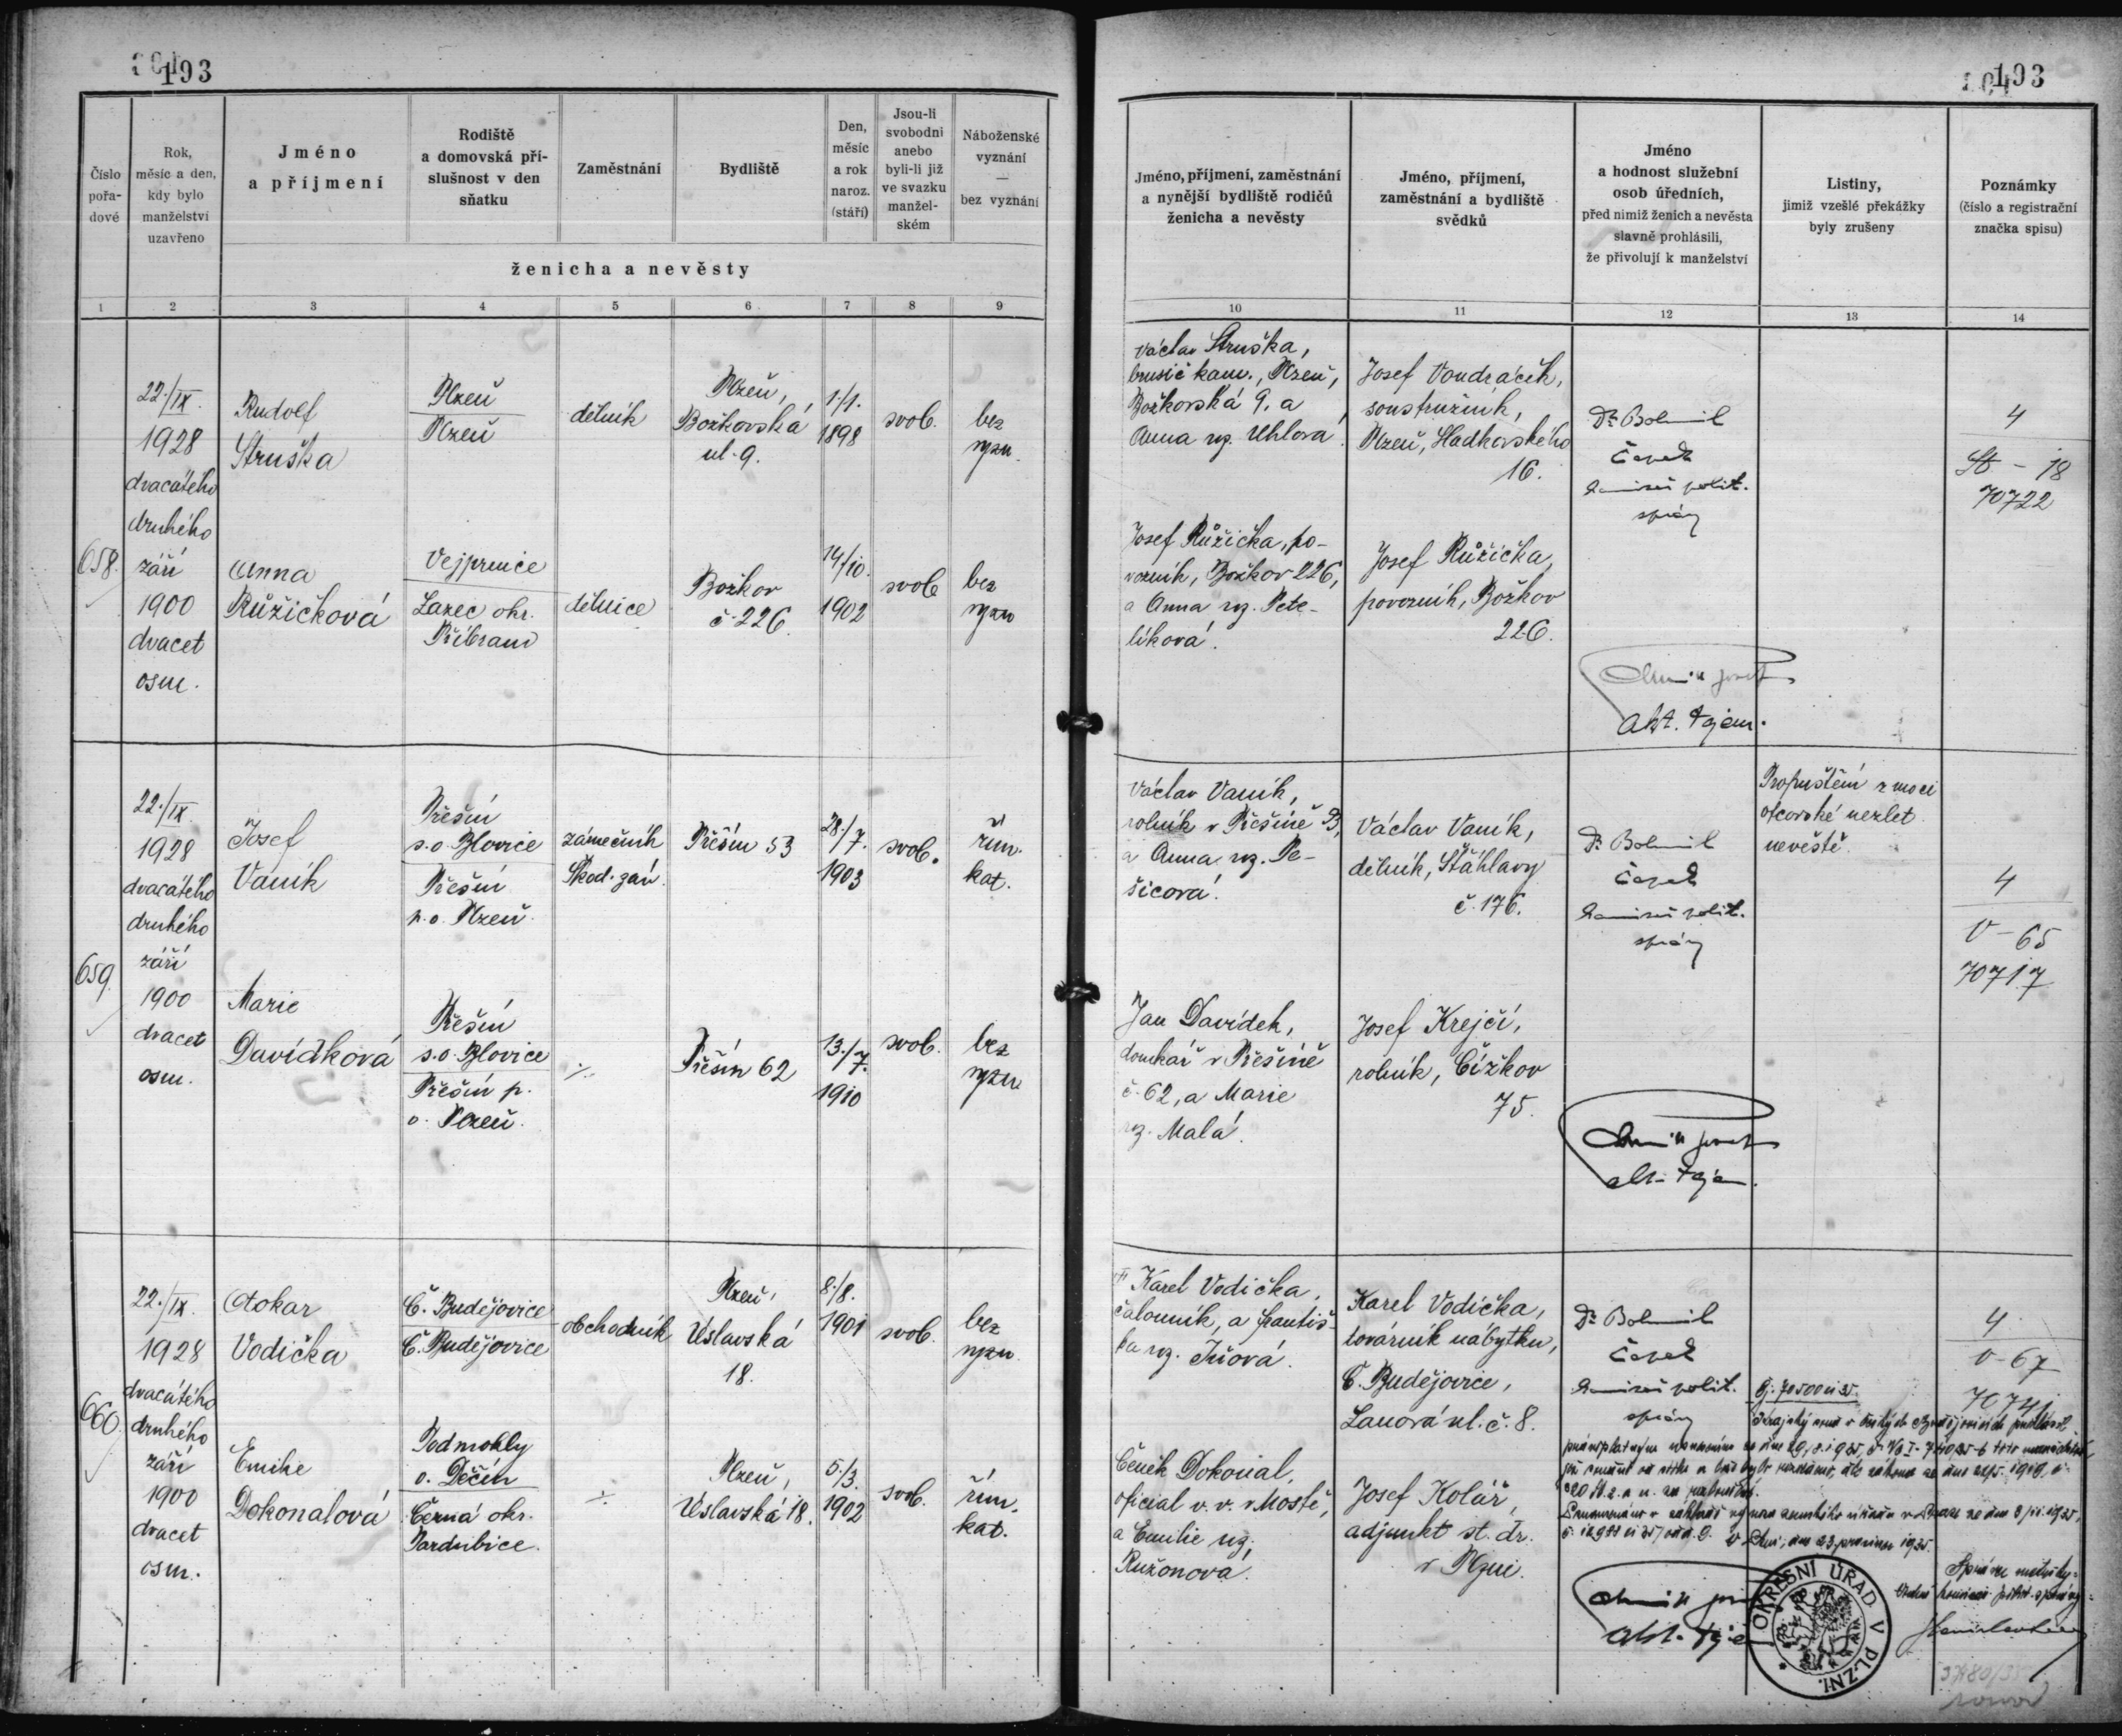 193
193
Číslo
pořa-
dové
Rok,
měsíc a den,
kdy bylo
manželství
uzavřeno
Jméno
a příjmení
Rodiště
a domovská pří-
slušnost v den
sňatku
Zaměstnání
Bydliště
Den,
měsíc
a rok
naroz.
(stáří)
Jsou-li
svobodni
anebo
byli-li již
ve svazku
manžel-
ském
Náboženské
vyznání
—
bez vyznání
ženicha a nevěsty
1 2 3 4 5 6 7 8 9
Jméno, příjmení, zaměstnání
a nynější bydliště rodičů
ženicha a nevěsty
Jméno, příjmení,
zaměstnání a bydliště
svědků
Jméno
a hodnost služební
osob úředních,
před nimiž ženich a nevěsta
slavně prohlásili,
že přivolují k manželství
Listiny,
jimiž vzešlé překážky
byly zrušeny
Poznámky
(číslo a registrační
značka spisu)
10 11 12 13 14
658.
22./IX.
1928
dvacátého
druhého
září
1900
dvacet
osm.
Rudolf
Struška
Plzeň
Plzeň
dělník
Plzeň,
Božkovská
ul. 9.
1./1.
1898
svob.
bez
vyzn.
Anna
Růžičková
Vejprnice
Lazec okr.
Příbram
dělnice
Božkov
č. 226.
14/10.
1902
svob
bez
vyzn
Václav Struška,
brusič kam., Plzeň,
Božkovská 9, a
Anna roz. Uhlová.
Josef Růžička, po-
vozník, Božkov 226,
a Anna roz. Pete-
líková.
Josef Vondráček,
soustružník,
Plzeň, Sladkovského
16.
Josef Růžička,
povozník, Božkov
226.
Dr Bohumil
Čapek
komisař polit.
správy
akt. tajem.
4
St – 18
70722
659.
22./IX.
1928
dvacátého
druhého
září
1900
dvacet
osm.
Josef
Vaník
Přešín
s.o. Blovice
Přešín
p.o. Plzeň.
zámečník
Škod. záv.
Přešín 53
28./7.
1903
svob.
řím.
kat.
Marie
Davídková
Přešín
s.o. Blovice
Přešín p.
o. Plzeň.
÷
Přešín 62
13./7.
1910
svob.
bez
vyzn
Václav Vaník,
rolník v Přešíně 53,
a Anna roz. Pe-
šicová.
Jan Davídek,
domkář v Přešíně
č. 62, a Marie
roz. Malá.
Václav Vaník,
dělník, Šťáhlavy
č. 176.
Josef Krejčí,
rolník, Čížkov
75.
Dr Bohumil
Čapek
komisař polit.
správy
akt. tajem.
Propuštění z moci
otcovské nezlet.
nevěstě.
4
V – 65
70717
660.
22./IX.
1928
dvacátého
druhého
září
1900
dvacet
osm.
Otokar
Vodička
Č. Budějovice
Č. Budějovice
obchodník
Plzeň,
Úslavská
18.
8./8.
1901
svob.
bez
vyzn.
Emilie
Dokonalová
Podmokly
o. Děčín
Černá okr.
Pardubice.
÷
Plzeň,
Úslavská 18.
5./3.
1902
svob.
řím.
kat.
† Karel Vodička,
čalouník, a Františ-
ka roz. Tršová.
Čeněk Dokonal,
oficial v. v. v Mostě,
a Emilie roz.
Ružonová.
Karel Vodička,
továrník nábytku,
Č. Budějovice,
Lanová ul. č. 8.
Josef Kolář,
adjunkt st. dr.
v Plzni.
Dr Bohumil
Čapek
komisař polit.
správy
akt. taje
4
V–67
70741
OKRESNÍ ÚŘAD V PLZNI.
Správce matriky: